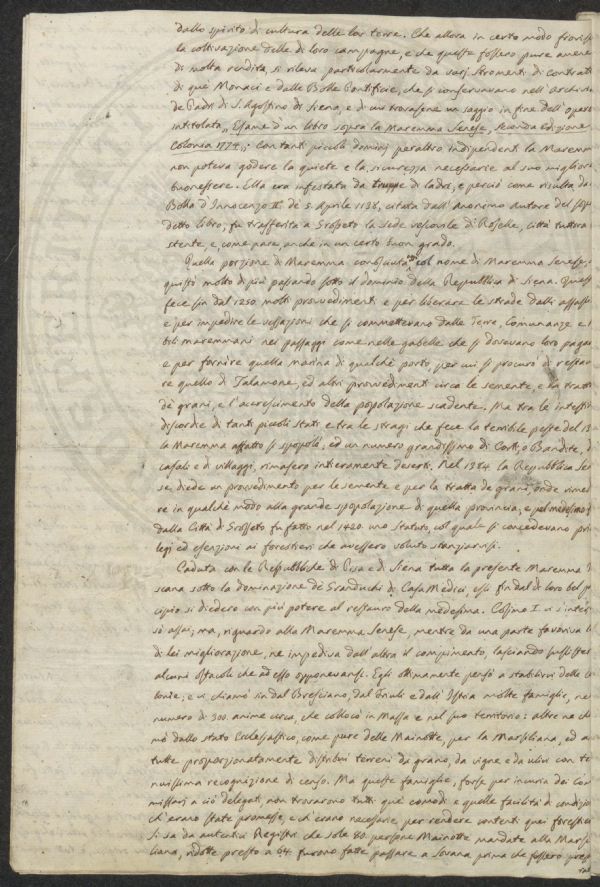 dallo spirito di cultura delle lor terre. Che allora in certo modo fioriss
la coltivazione delle di loro campagne, e che queste fossero pure amene
di molta rendita, si rileva particolarmente da varj stromenti di contratti
di que Monaci e dalle Bolle Pontificie, che si conservavano nell' Archivio
de Padri di S. Agostino di Siena, e di cui trovasene un saggio in fine dell' opera
intitolata „ Esame d' un libro sopra la Maremma Senese, seconda edizione
Colonia 1774„: Con tanti piccoli dominj peraltro indipendenti la Maremma
non poteva godere la quiete e la sicurezza necessarie al suo migliore
buonessere. Ella era infestata da truppe di ladri, e perciò come risulta da
Bolla d' Innocenzo II. de 5. Aprile 1138, citata dall' anonimo Autore del
detto libro, fu trasferita a Grosseto la Sede vescovile di Roselle, città tuttora
stente, e, come pare, anche in un certo buon grado.
Quella porzione di Maremma conosciuta col nome di Maremma Senese,
quistò molto di più passando sotto il dominio della Repubblica di Siena. Questa
fece sin dal 1250 molti provvedimenti e per liberare le strade dalli assassi
e per impedire le vessazioni che si commettevano dalle Terre, Comunanze e
bili maremmani nei passaggi come nelle gabelle che si dovevano loro pagar
e per fornire quella marina di qualche porto, per cui si procurò di restau
re quello di Talamone, ed altri provvedimenti circa le semente, e la tratta
de grani, e l'accrescimento della popolazione scadente. Ma tra le intestine
discordie di tanti piccoli Stati e tra le stragi che fece la terribile peste del 13
la Maremma affatto si spopolò, ed un numero grandissimo di Corti, o Bandite, d
casali e di villaggj, rimasero intieramente deserti. Nel 1384 la Repubblica Sen
se diede un provvedimento per le semente e per la tratta de grani, onde rimed
re in qualche modo alla grande spopolazione di quella provincia, e pel medesimo
dalla Città di Grosseto fu fatto nel 1420. uno Statuto, col quale si concedevano priv
legj ed esenzioni ai forestieri che avessero voluto stanziarvisi.
Caduta con le Repubbliche di Pisa e di Siena tutta la presente Maremma
scana sotto la dominazione de Granduchi di Casa Medici, essi fin dal di loro bel p
cipio si diedero con più potere al restauro della medesima. Cosimo I. vi s'inter
sò assai; ma, riguardo alla Maremma Senese, mentre da una parte favoriva
di lei migliorazione, ne impediva dall' altra il compimento, lasciando sussister
alcuni ostacoli che ad esso opponevansi. Egli ottimamente pensò a stabilirvi delle Co
lonie; e vi chiamò sin dal Bresciano, dal Friuli e dall' Istria molte famiglie, ne
numero di 300. anime circa, che collocò in Massa e nel suo territorio: altre ne chia
mò dallo stato Ecclesiastico, come pure delle Mainotte, per la Marsiliana, ed a
tutte proporzionatamente distribuì terreni da grano, da vigne e da ulivi con te
nuissima recognizione di censo. Ma queste famiglie, forse per incuria dei Com
missarj a ciò delegati, non trovarono tutti que' comodi e quelle facilità di condizio
ch'erano state promesse, e ch'erano necessarie, per rendere contenti quei forestieri
Si sa da autentici Registri che sole 80. persone Mainotte mandate alla Marsi
liana, ridotte presto a 64. furono fatte passare a Sovana prima che fossero